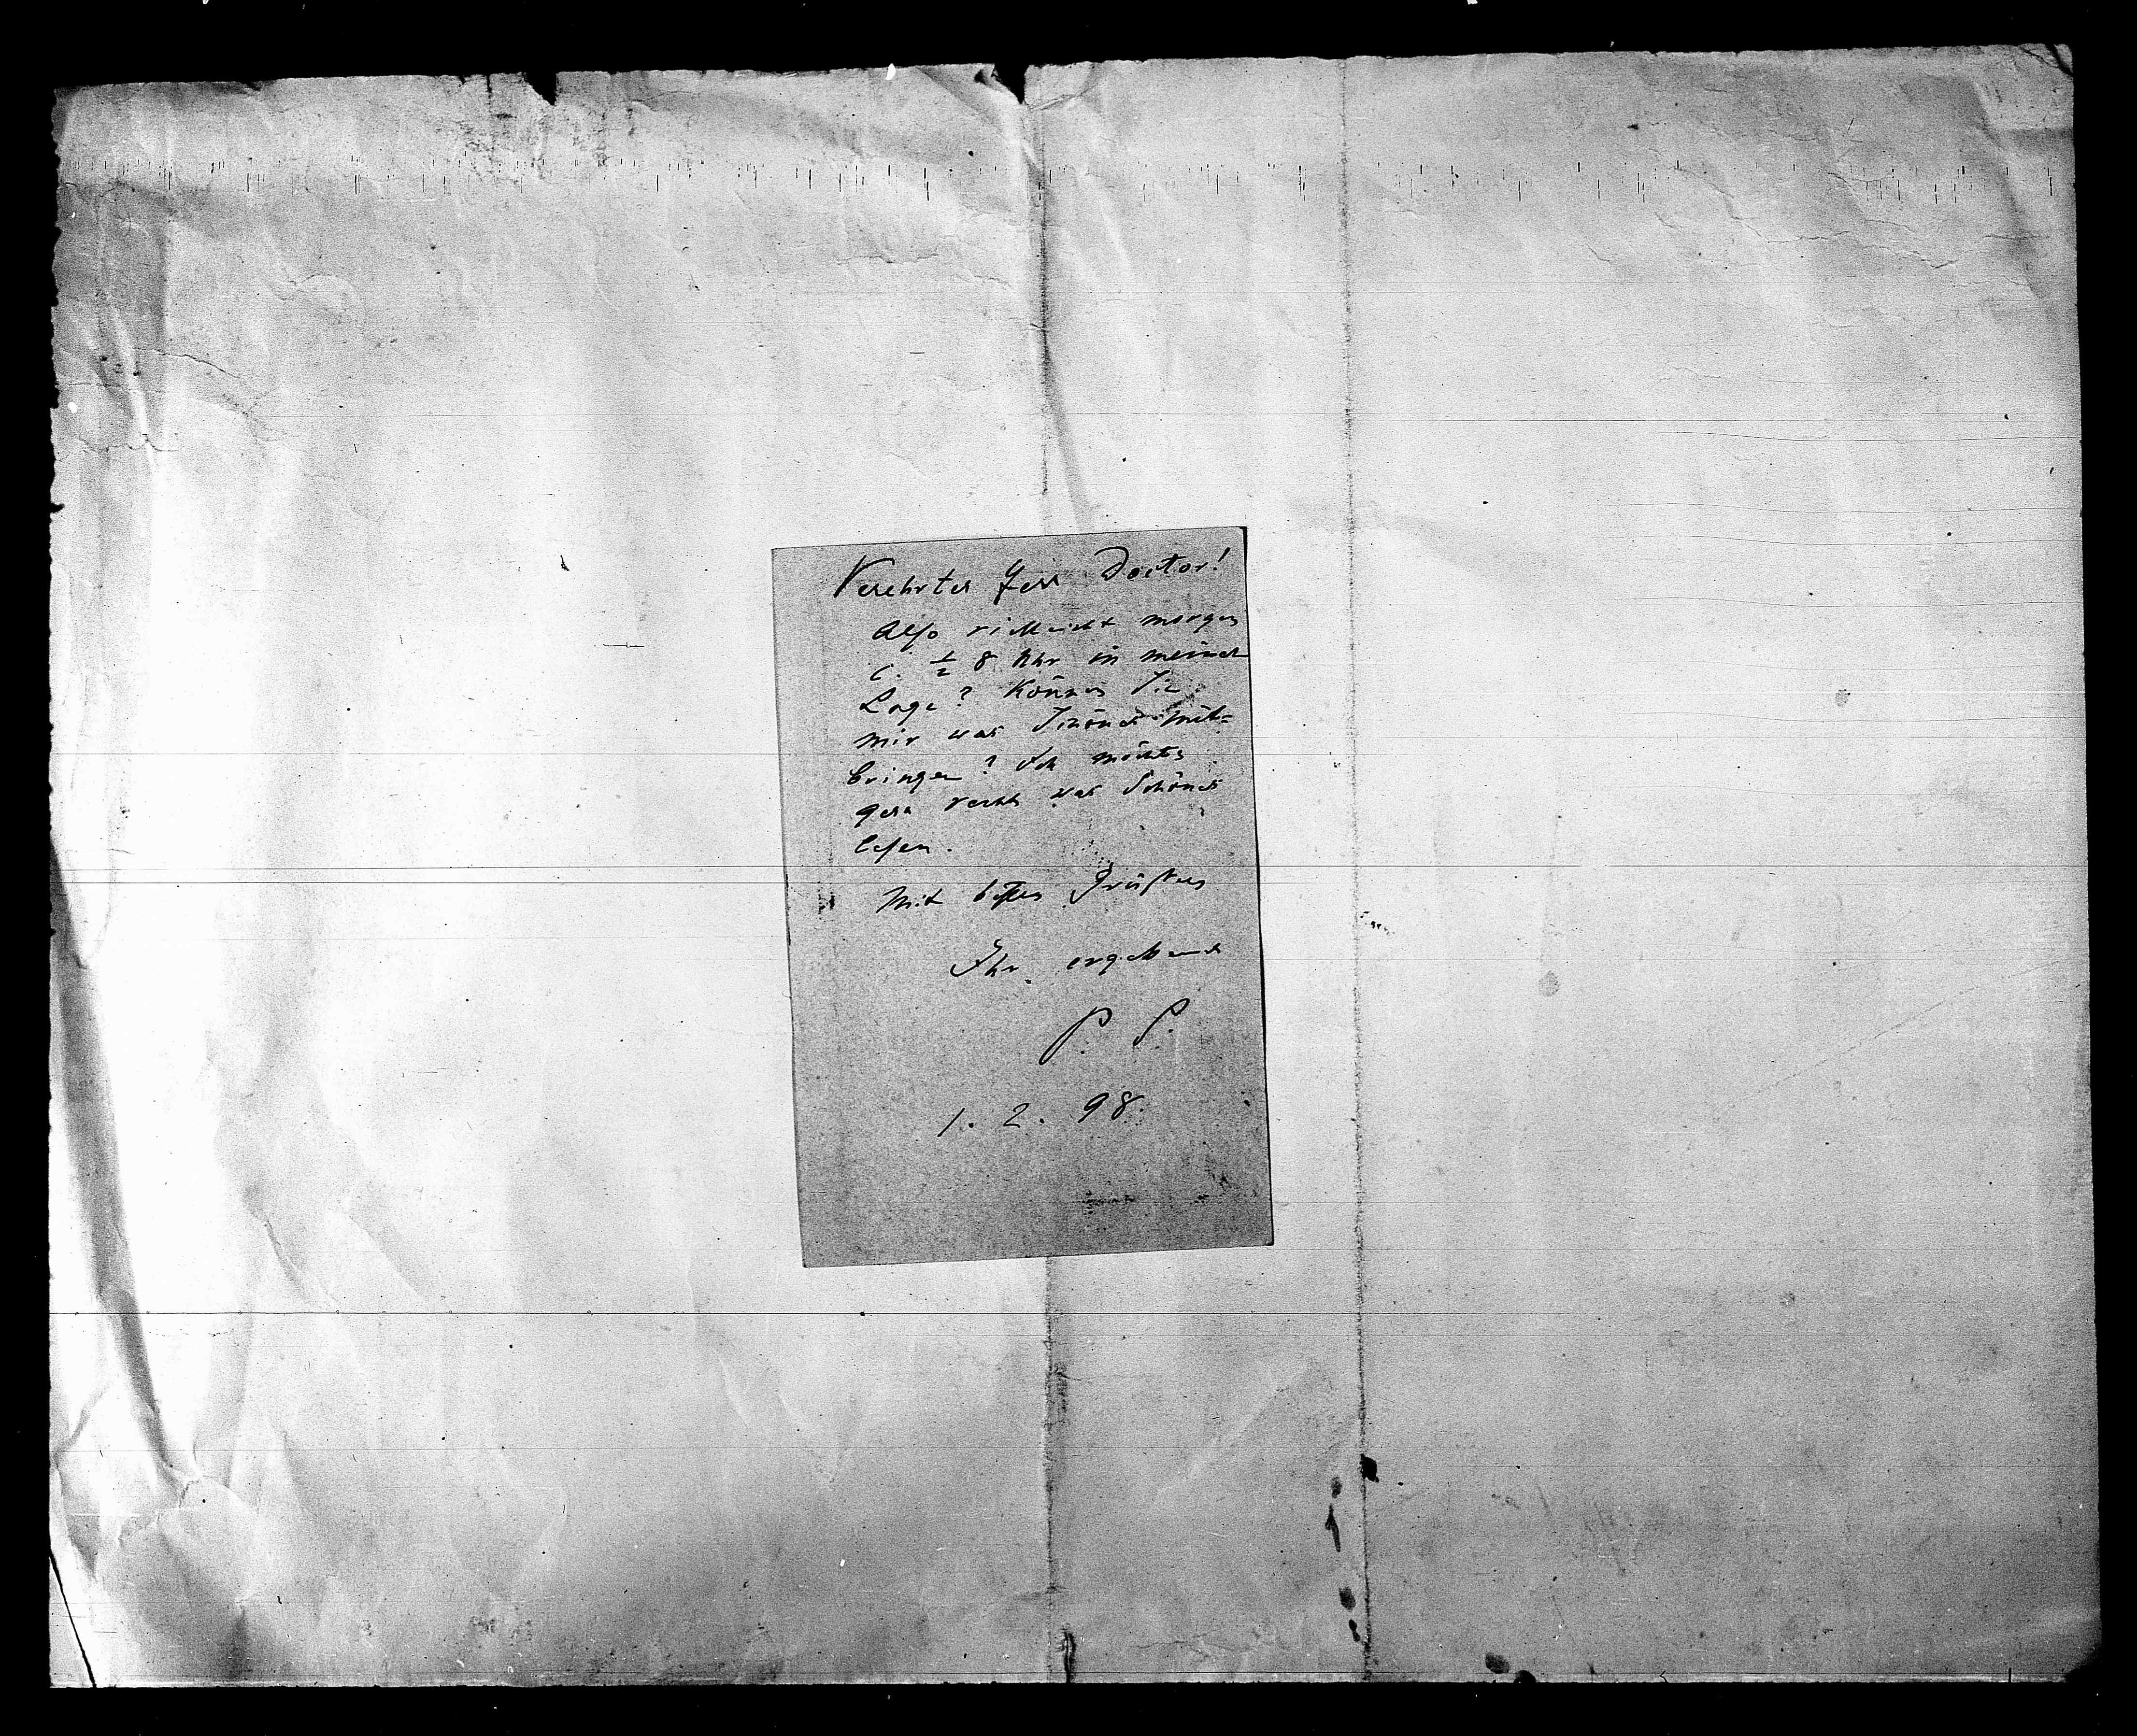 Verehrter Herr Doctor!
Also vielleicht morgen
c. ½ 8 Uhr in meiner
Loge? Können Sie
mir was Schönes mit=
bringen? Ich möchte
gern recht was Schönes
lesen.
Mit besten Grüßen
Ihr ergebener
P. S.
1. 2. 98.